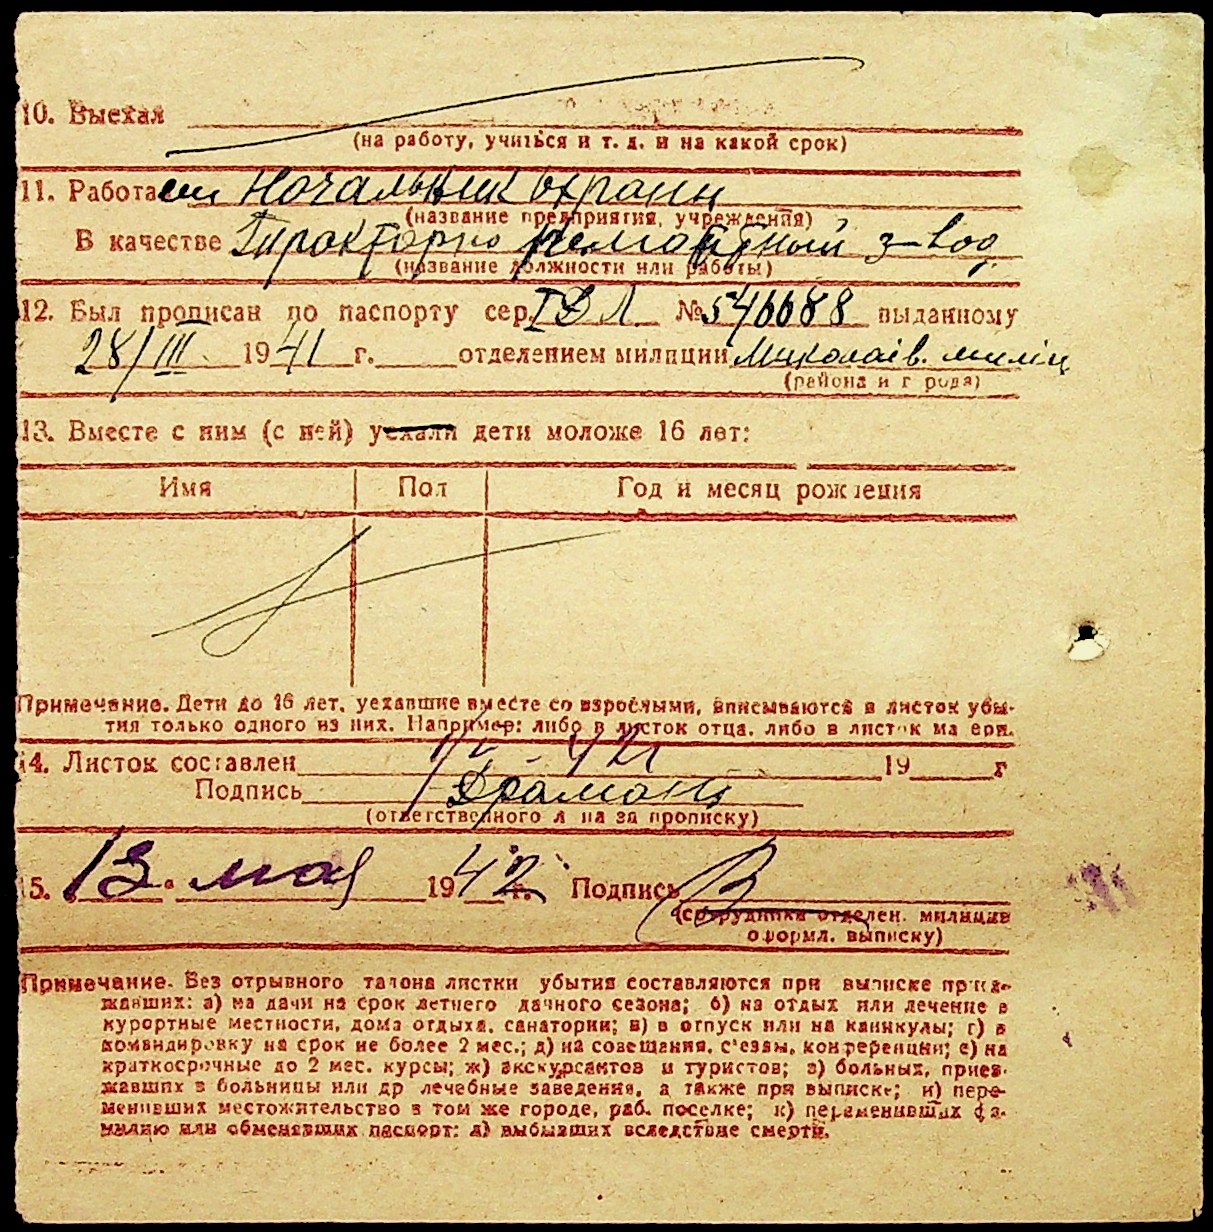 10. Выехал
(на работу, учиться и т. д. и на какой срок)
11. Работает Начальник охраны
(название предприятия, учреждения)
В качестве Тракторно Ремонтный з-вод
(название должности или работы)
12. Был прописан по паспорту сер. № 546688 выданному
28/III 1941 г. отделением милиции Миколаів. міліц
(района и города)
13. Вместе с ним (с ней) уехали дети моложе 16 лет:
Имя Пол Год и месяц рождения
Примечание. Дети до 16 лет, уехавшие вместе со взрослыми, вписываются в листок убы-
тия только одного из них. Например: либо в листок отца, либо в листок матери.
14. Листок составлен 42г 19 г
Подпись
(ответственного лица за прописку)
15. 13 мая 1942 г. Подпись
(сотрудника отделен. милиции
оформл. выписку)
Примечание. Без отрывного талона листки убытия составляются при выписке приез-
жавших: а) на дачи на срок летнего дачного сезона; б) на отдых или лечение в
курортные местности, дома отдыха, санатории; в) в отпуск или на каникулы; г) в
командировку на срок не более 2 мес.; д) на совещания, с'езды, конференции; е) на
краткосрочные до 2 мес. курсы; ж) экскурсантов и туристов; з) больных, приез-
жавших в больницы или др лечебные заведения, а также при выписке; и) пере-
менивших местожительство в том же городе, раб. поселке; к) переменивших фа-
милию или обменявших паспорт; л) выбывших вследствие смерти.